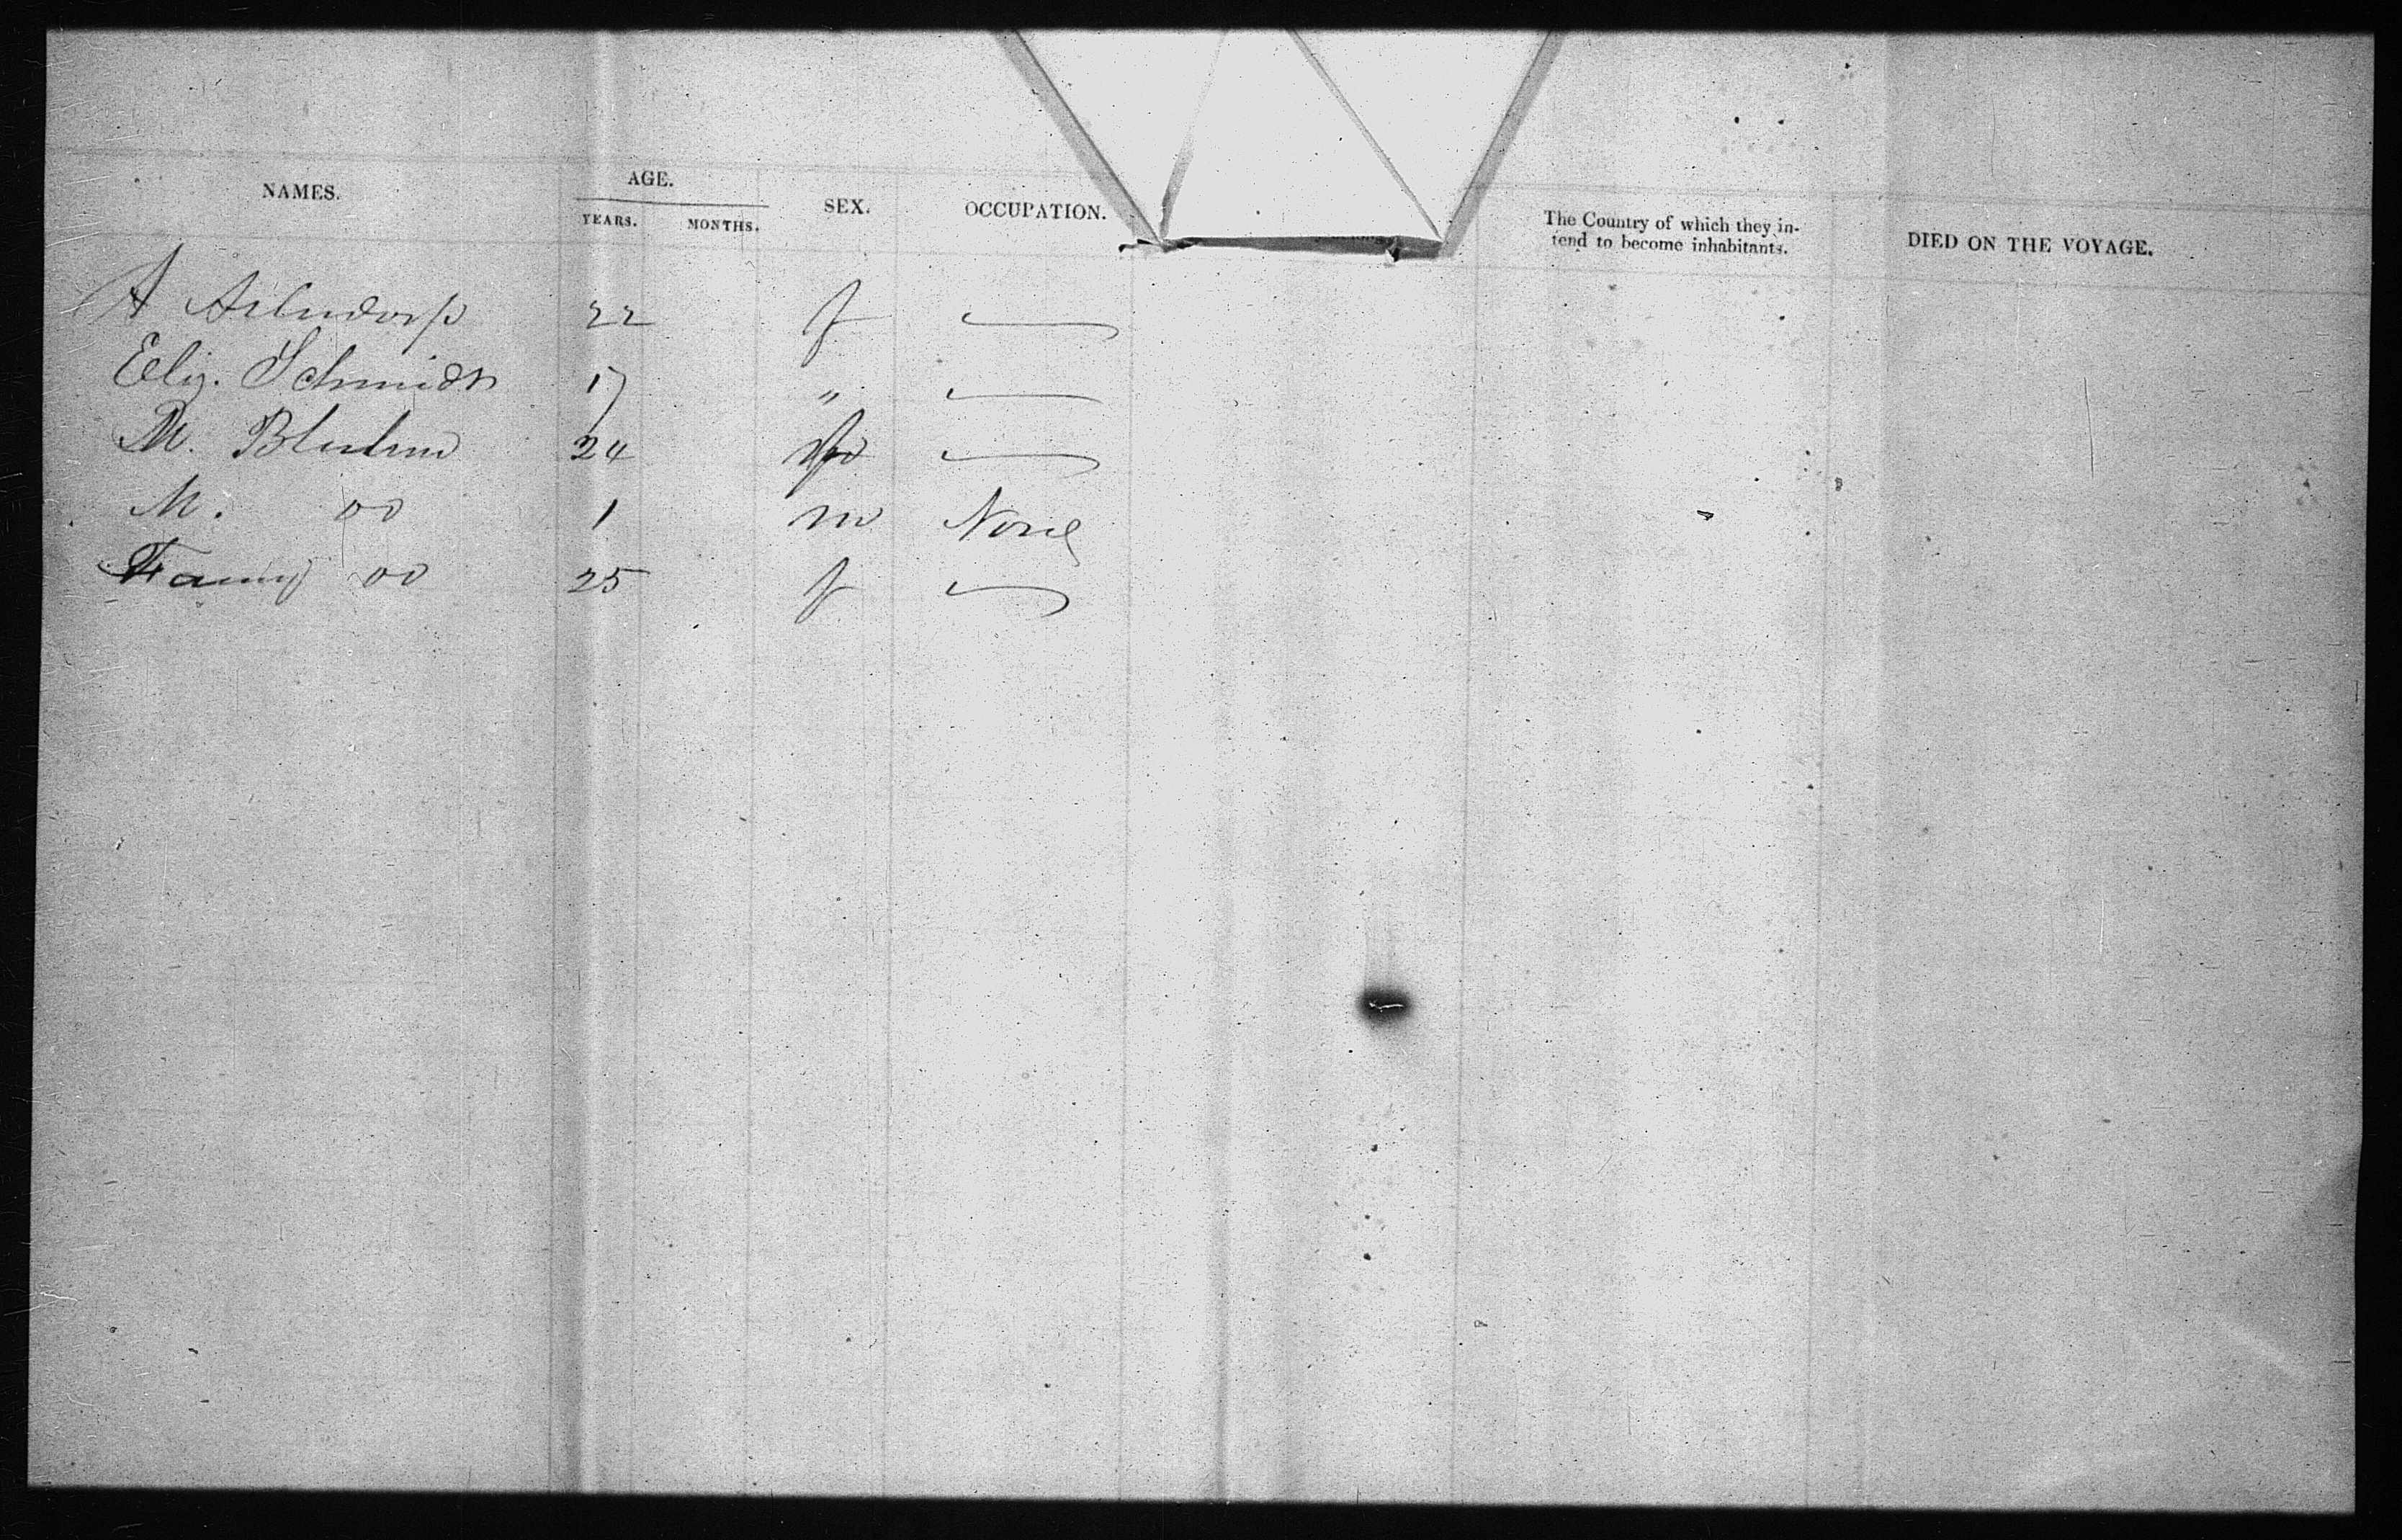 NAMES. AGE. SEX. OCCUPATION. The Country of which they in-
YEARS. MONTHS. tend to become inhabitants. DIED ON THE VOYAGE.
A 22 f
Eliz. Schmidt 17 "
M. 24
M. do 1 m None
Fanny do 25 f